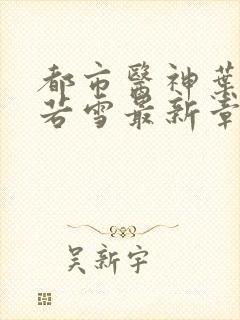 都市醫神葉
若雪最新章
吳新宇